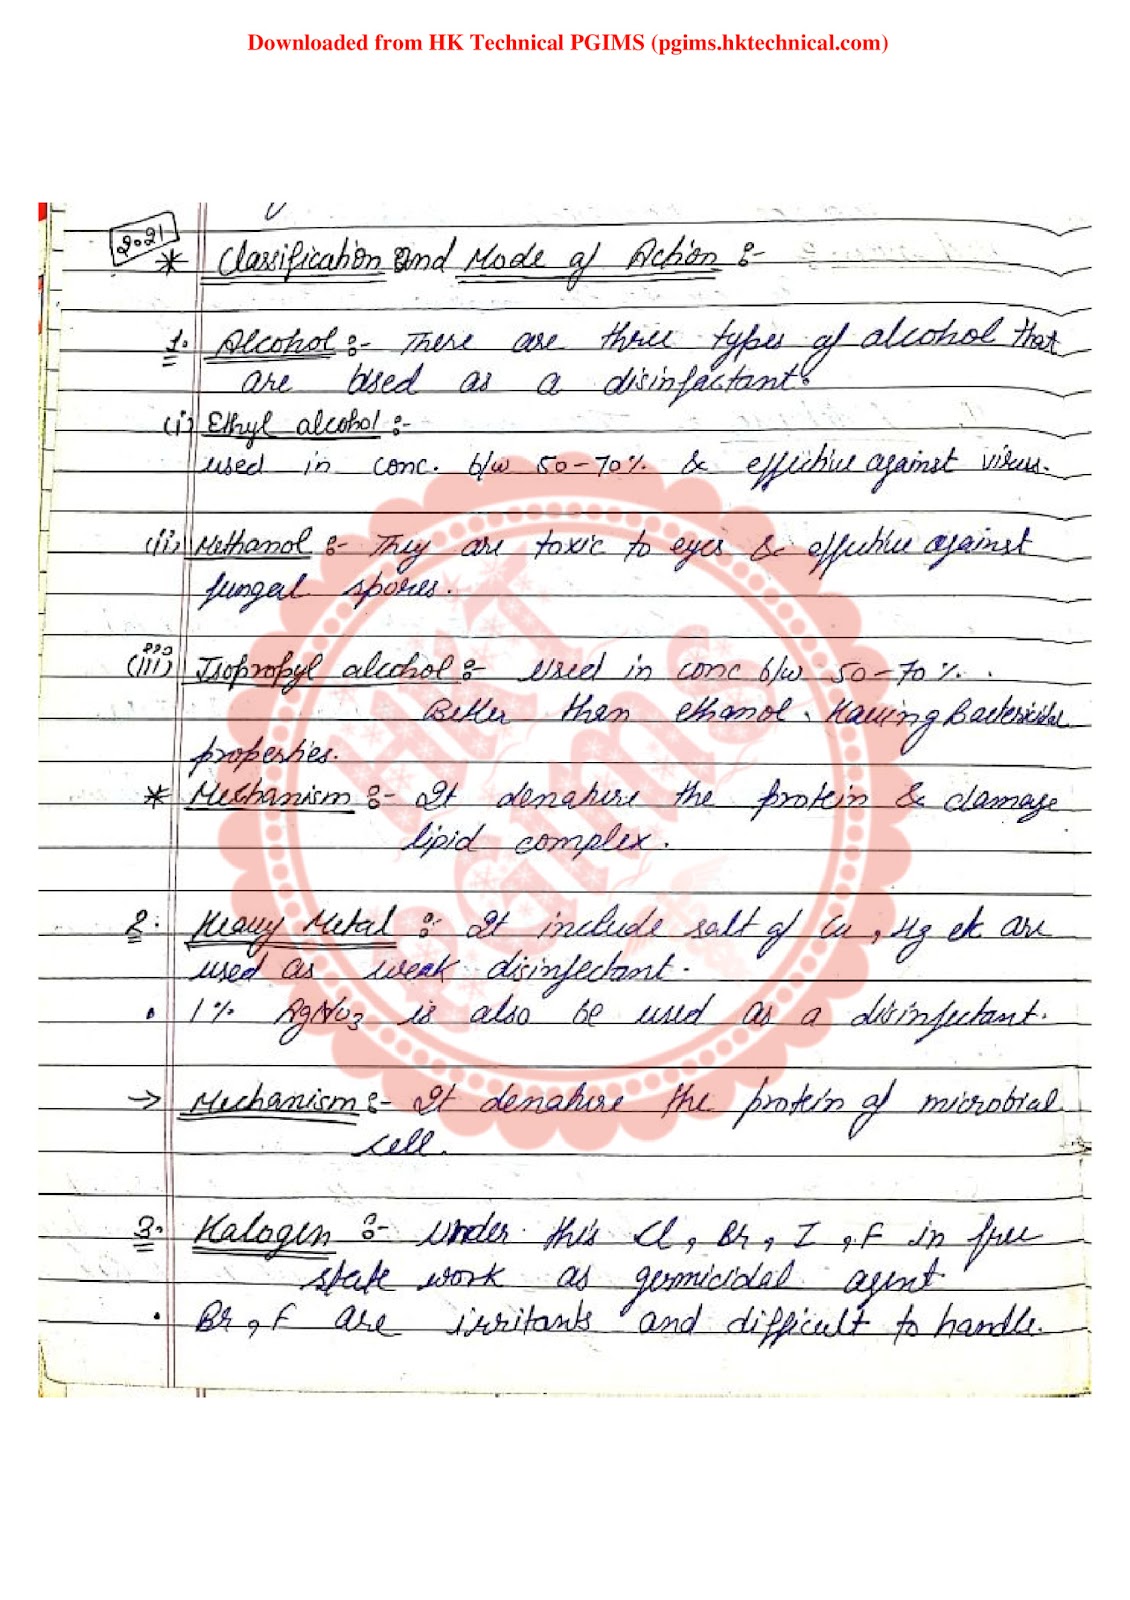 Downloaded from HK Technical PGIMS (pgims.hktechnical.com)
2021
* Classification and Mode of Action :-
1. Alcohol :- There are three types of alcohol that
are used as a disinfactant.
(i) Ethyl alcohol :-
used in conc. b/w 50-70% & effective against virus.
(ii) Methanol :- They are toxic to eyes & effective against
fungal spores.
(iii) Isopropyl alcohol :- Used in conc b/w 50-70%.
Better than ethanol. Having Bactericidal
properties.
* Mechanism :- It denature the protein & damage
lipid complex.
2. Heavy Metal :- It include salt of Cu, Hg etc are
used as weak disinfectant.
• 1% AgNO3 is also be used as a disinfectant.
→ Mechanism :- It denature the protein of microbial
cell.
3. Halogen :- Under this Cl, Br, I, F in free
state work as germicidal agent
• Br, F are irritants and difficult to handle.
HKT
PGIMS